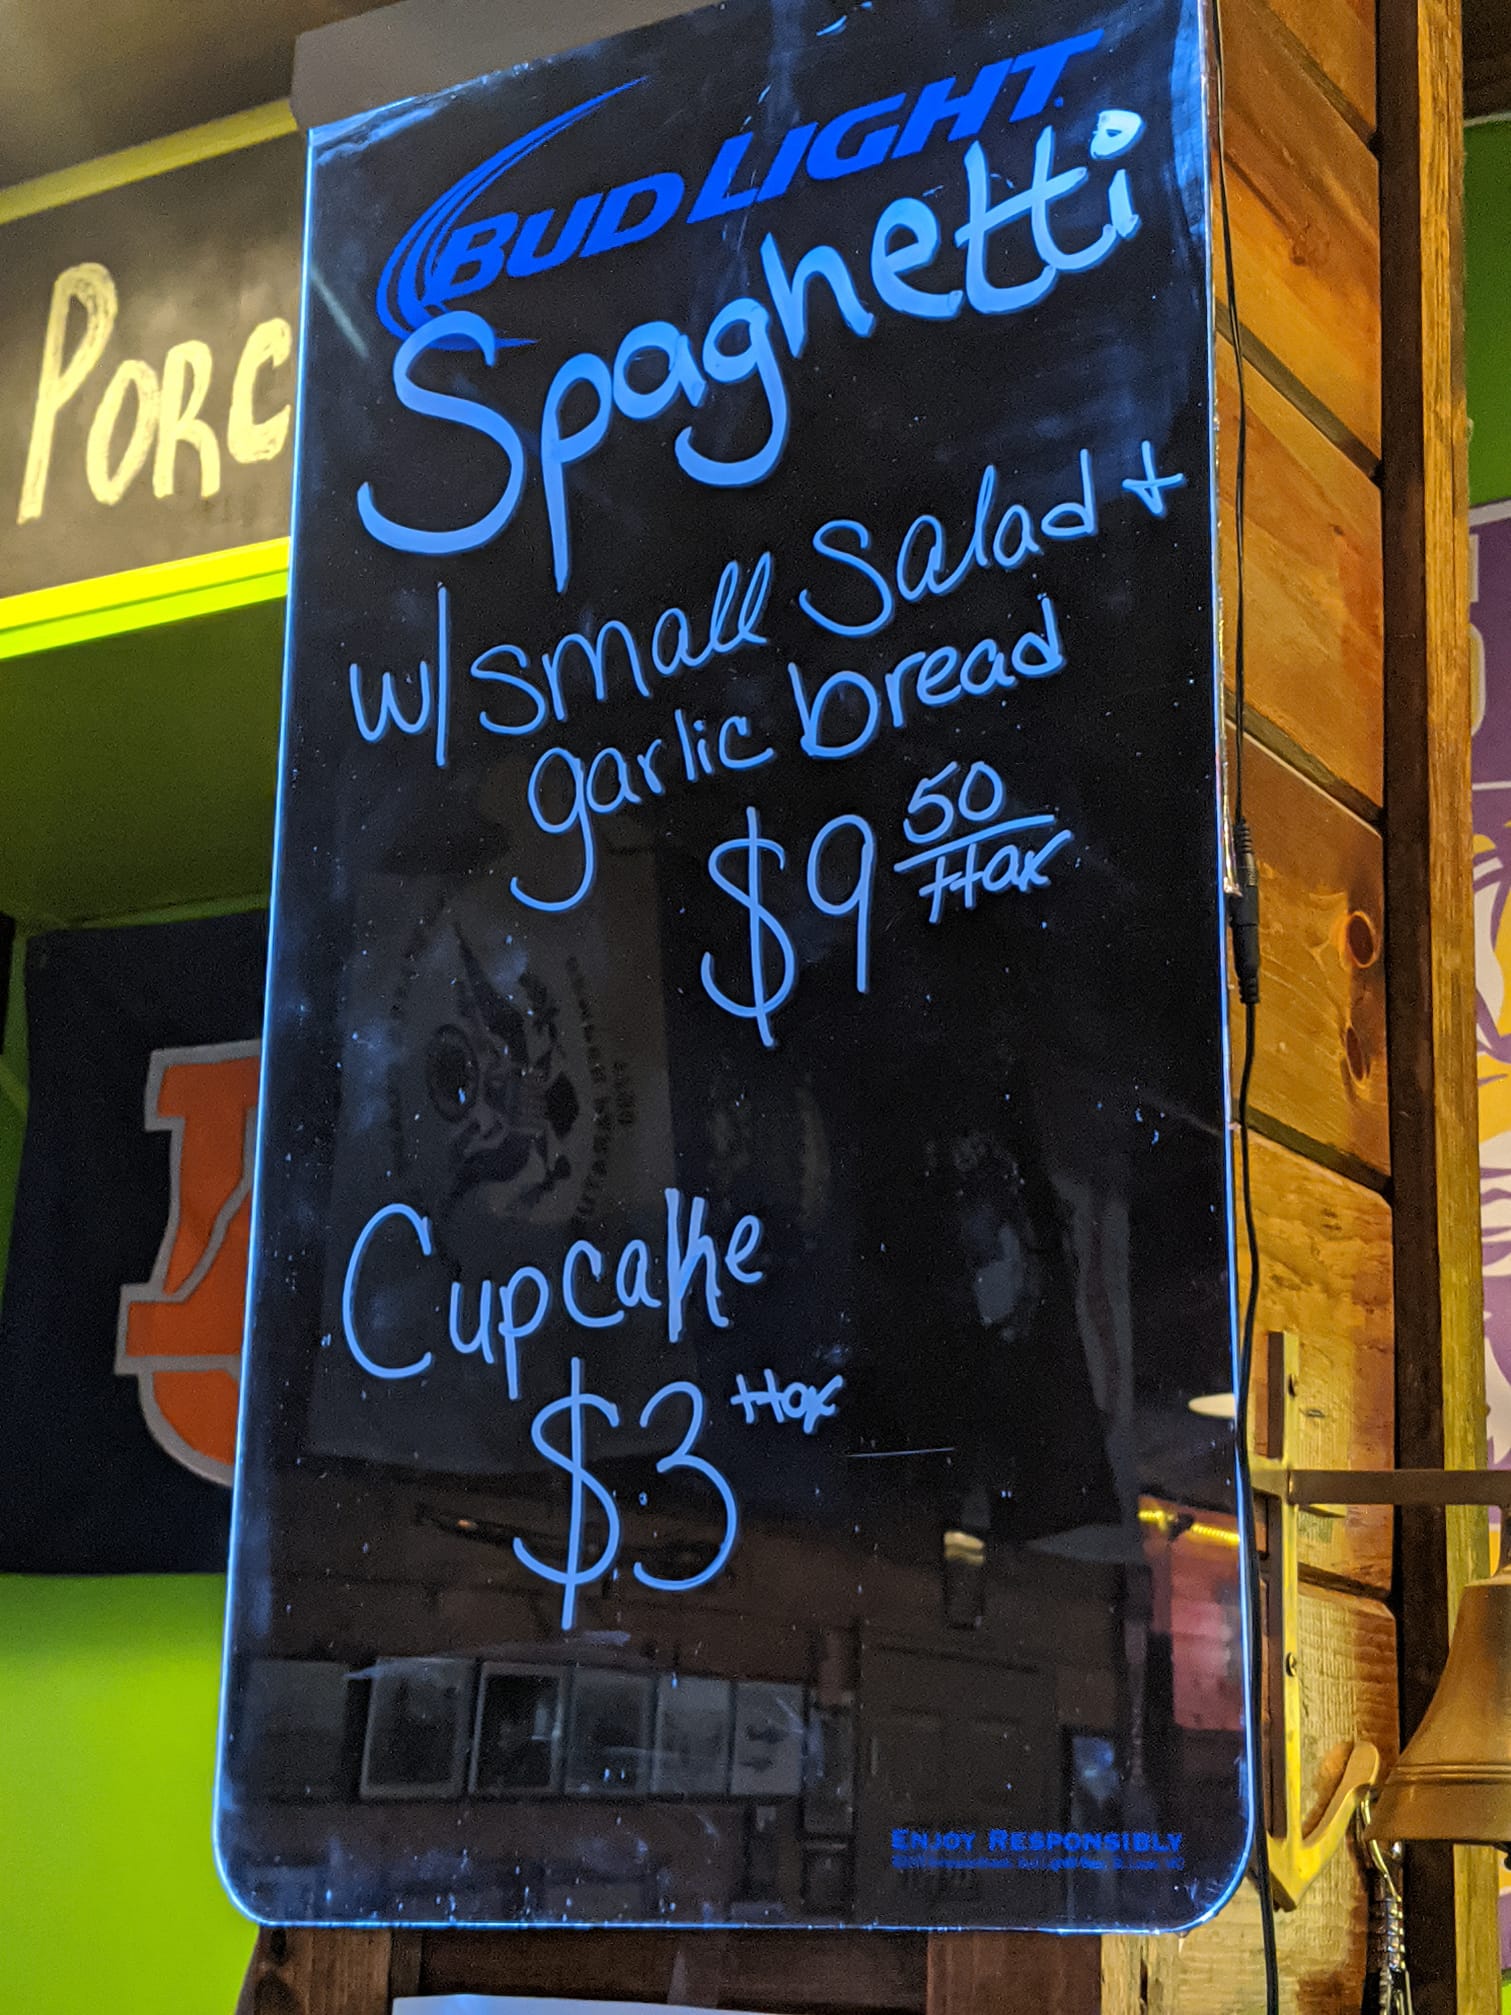 PORC
BUD LIGHT
Spaghetti
w/ small Salad +
garlic bread
$9 50
+tax
Cupcake
$3 +tax
ENJOY RESPONSIBLY